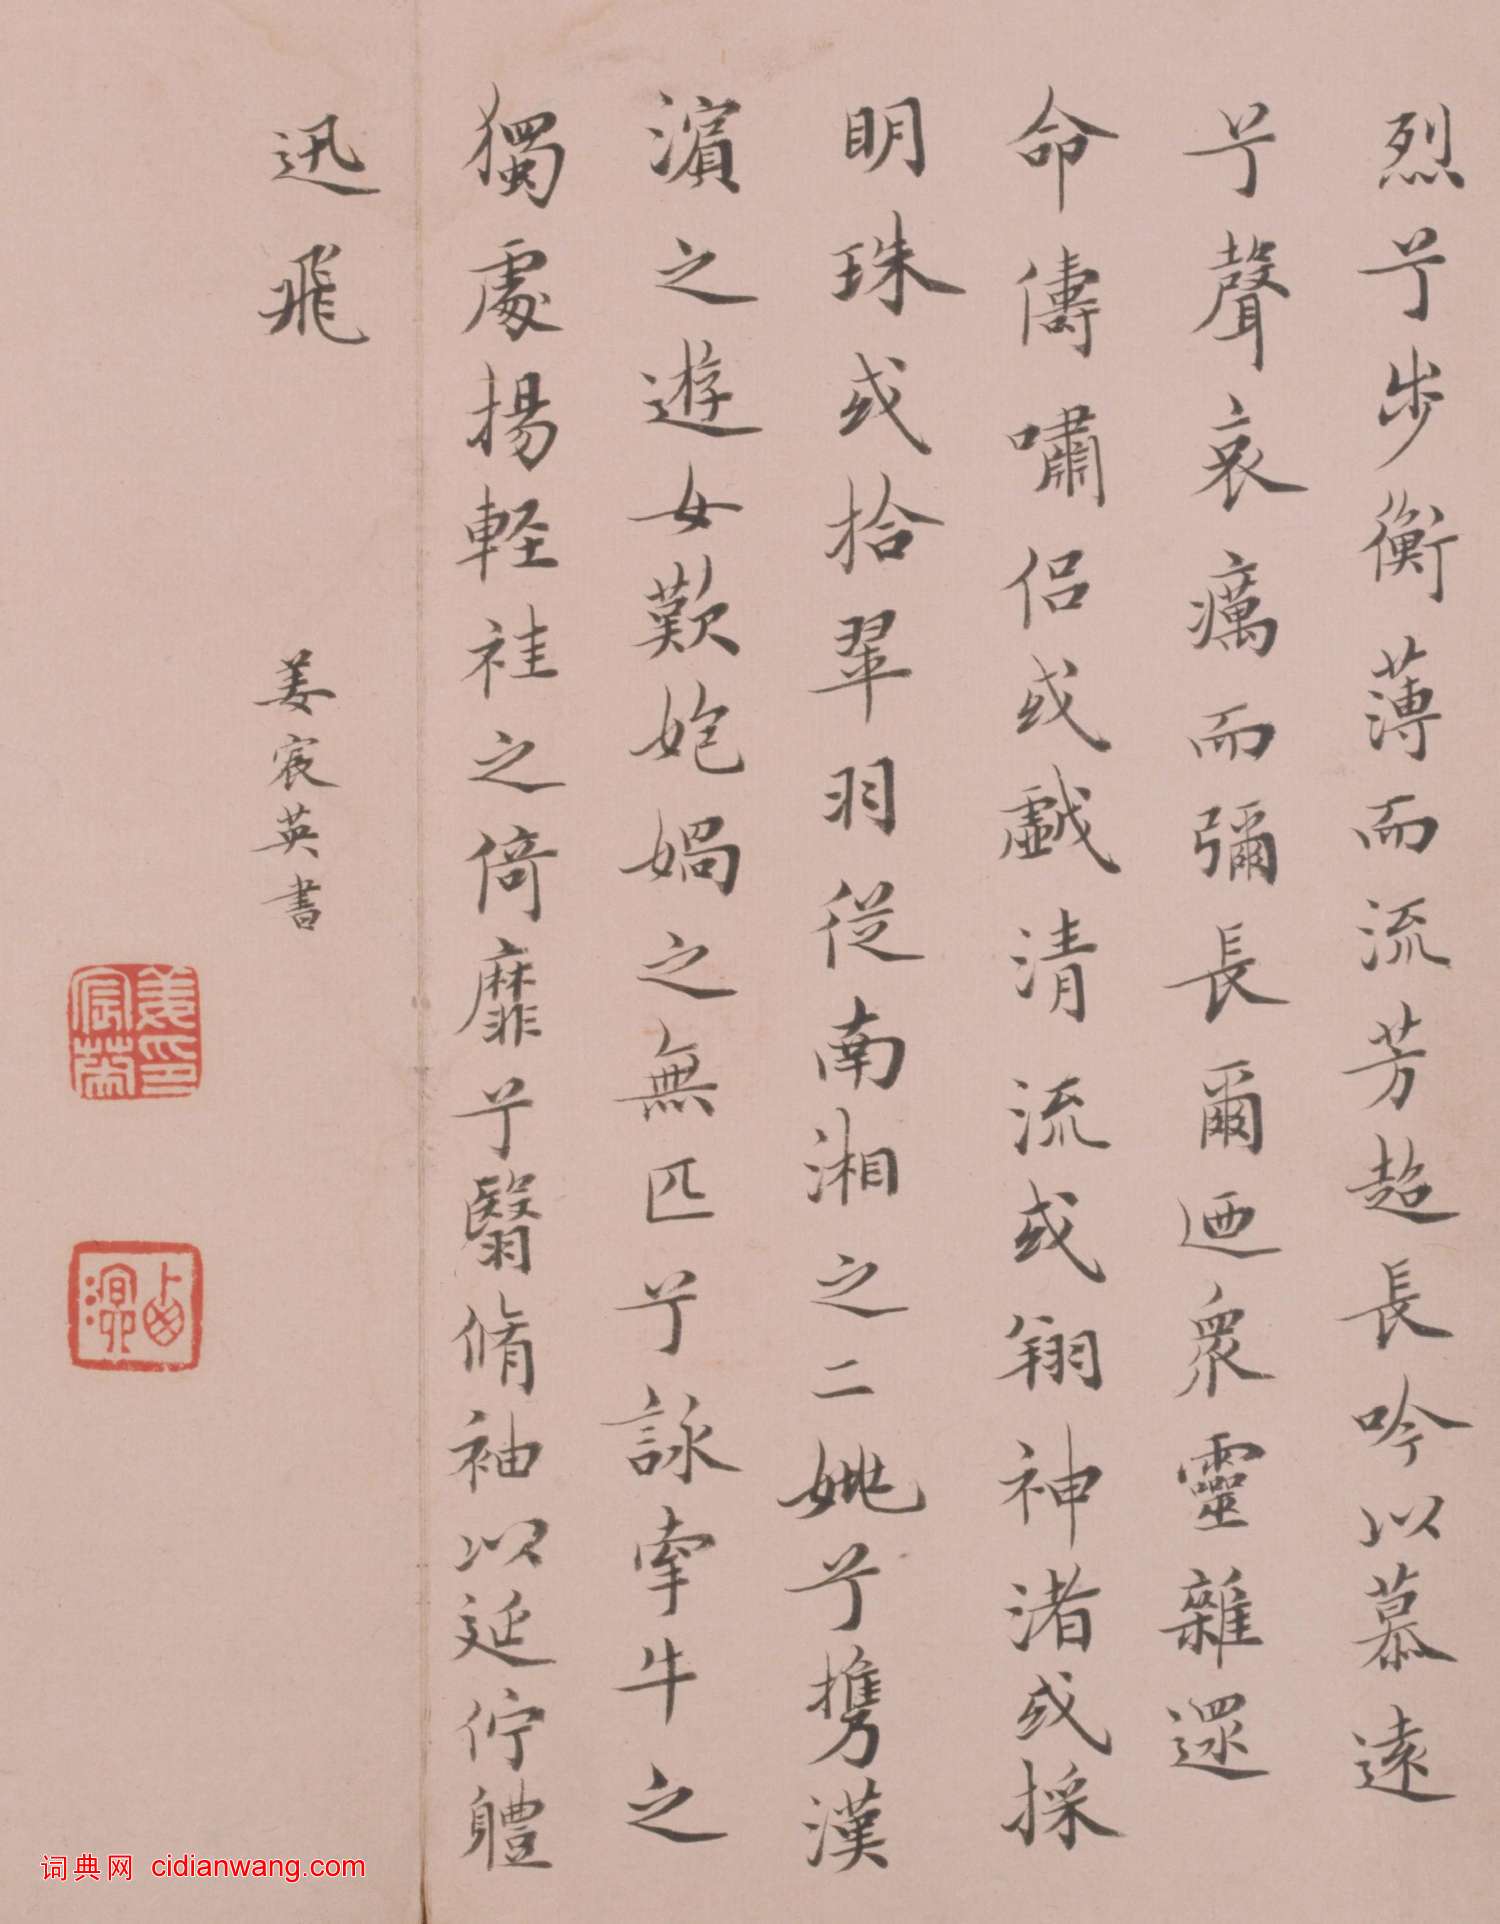 烈兮步衡薄而流芳超長吟以慕遠
兮聲哀癘而彌長爾迺衆靈雜遝
命儔嘯侶或戲清流或翔神渚或採
明珠或拾翠羽從南湘之二姚兮携漢
濱之遊女歎㚿媧之無匹兮詠牽牛之
獨處揚軽袿之倚靡兮翳脩袖以延佇體
迅飛
姜宸英書
姜宸英印
西溟
词典网 cidianwang.com